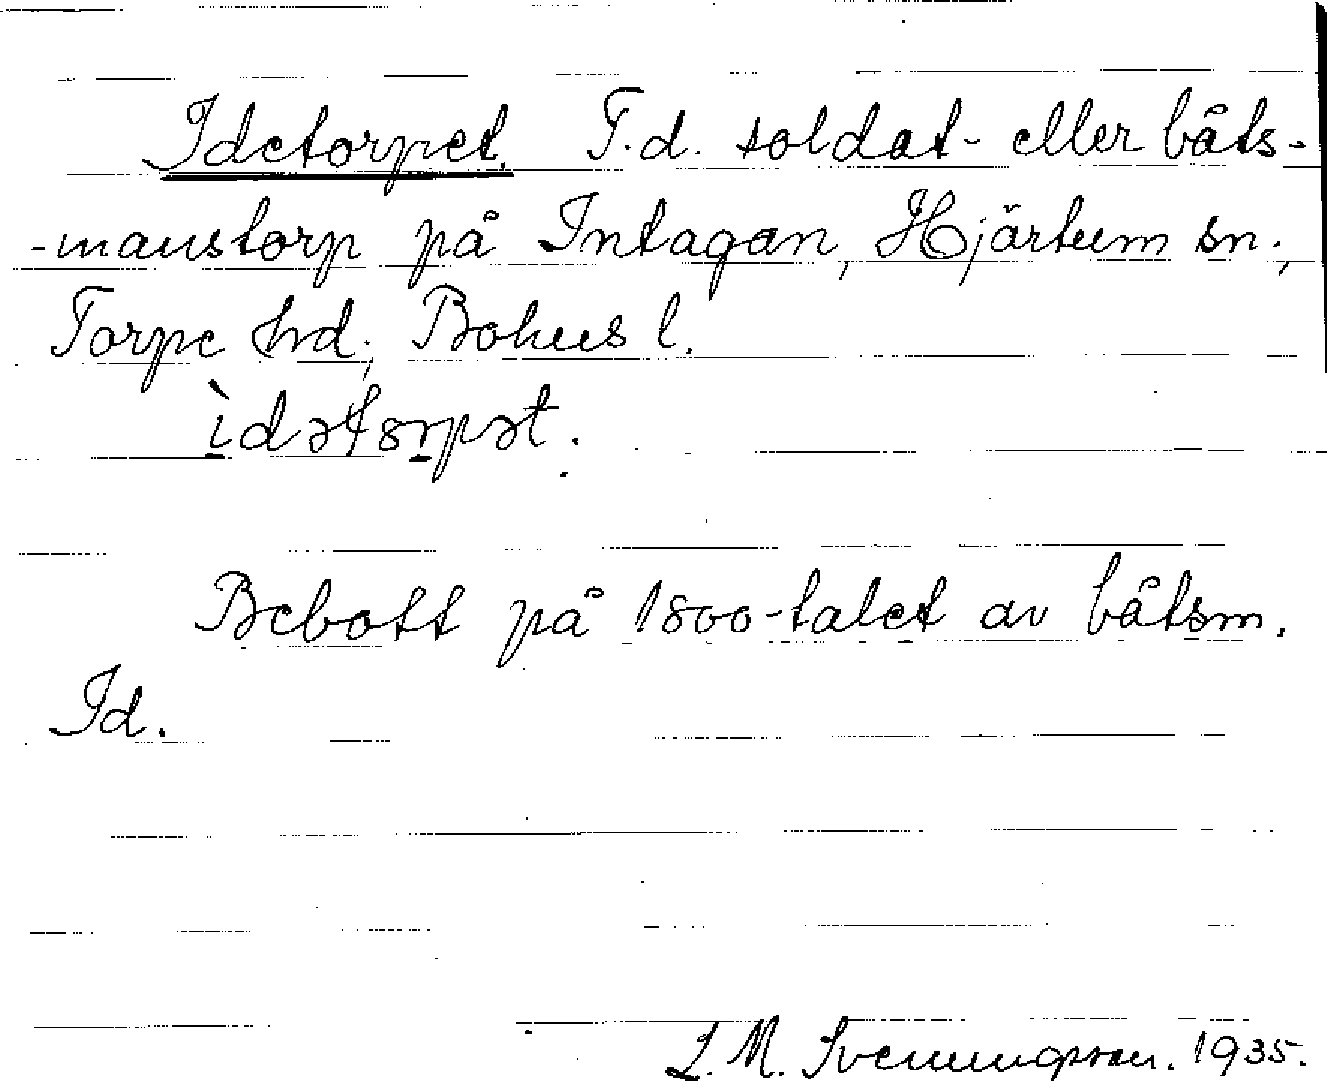 Idetorpet. F.d. soldat- eller båts-
-manstorp på Intagan, Hjärtum sn.,
Torpe hrd., Bohus l.
ìdətorpət.
Bebott på 1800-talet av båtsm.
Id.
L. M. Svenungsson. 1935.